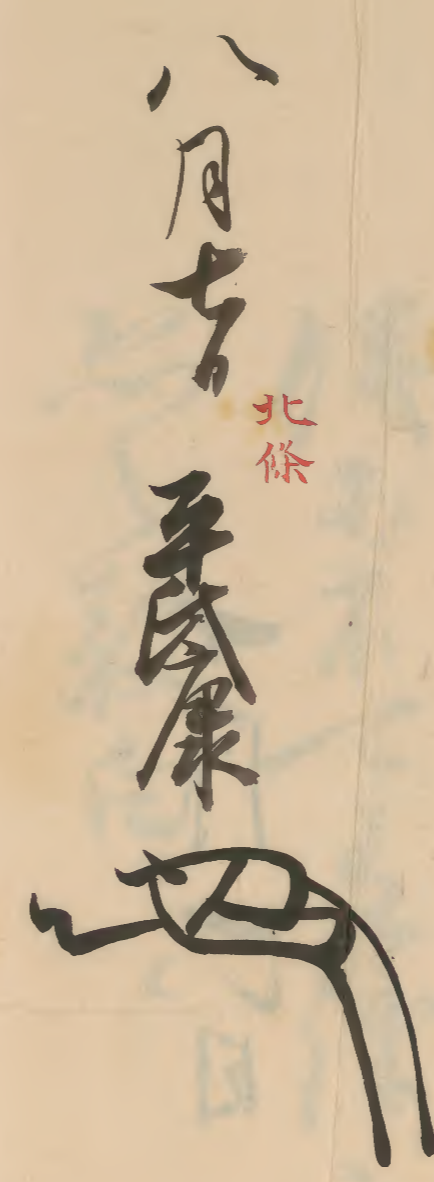 八月七日
北條
平氏康